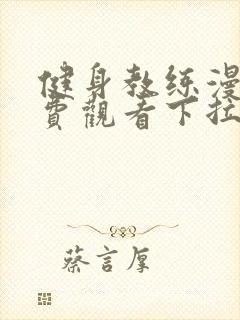 健身教练漫
費觀看下拉
蔡言厚